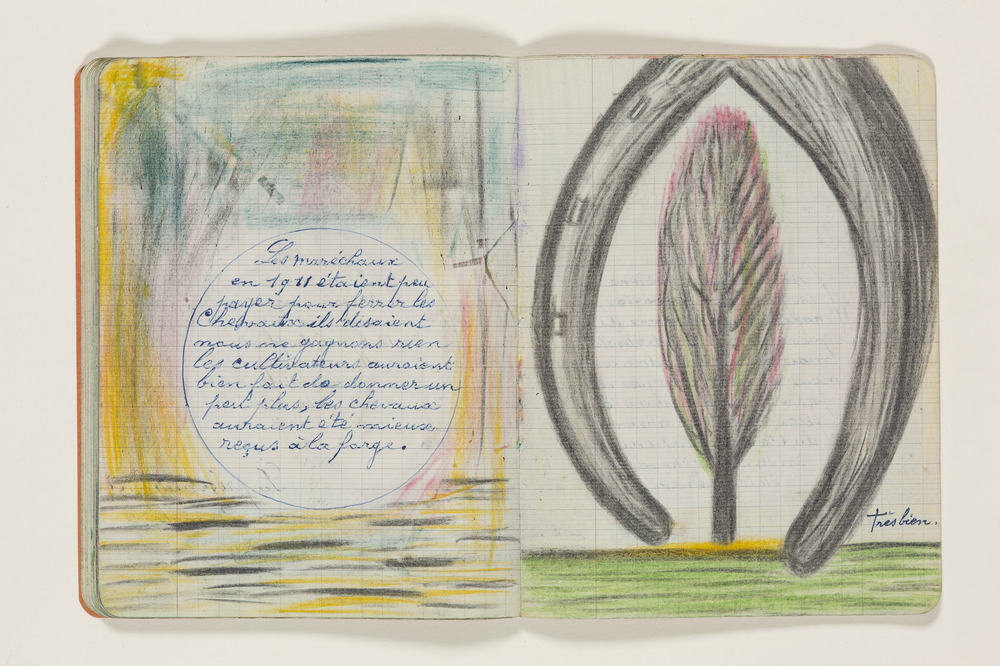 Les maréchaux
en 1911 étaient peu
payer pour ferrer les
Chevaux ils disaient
nous ne gagnons rien
les cultivateurs auraient
bien fait de donner un
peu plus, les chevaux
auraient été mieux
reçus à la forge.
très bien.